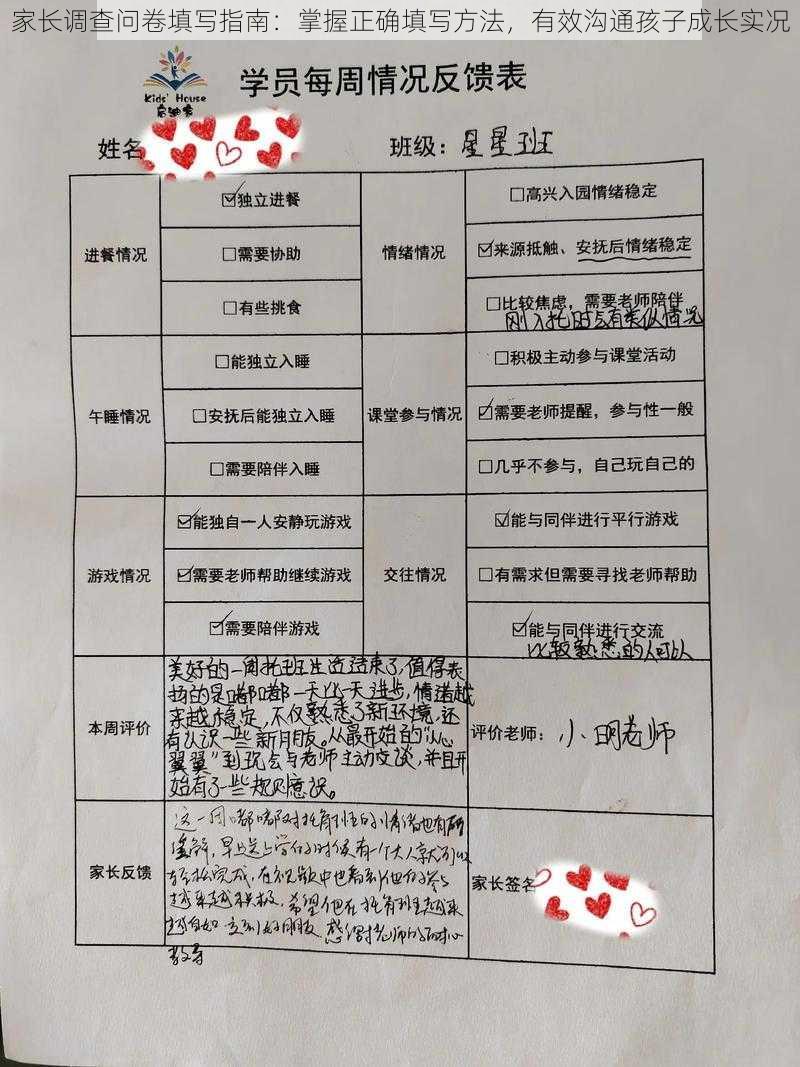 家长调查问卷填写指南：掌握正确填写方法，有效沟通孩子成长实况
Kids' House
学员每周情况反馈表
姓名
班级：星星班
进餐情况
☑独立进餐
☐需要协助
☐有些挑食
情绪情况
☐高兴入园情绪稳定
☑来源抵触、安抚后情绪稳定
☐比较焦虑，需要老师陪伴
刚入托时会有类似情况
午睡情况
☐能独立入睡
☐安抚后能独立入睡
☐需要陪伴入睡
课堂参与情况
☐积极主动参与课堂活动
☑需要老师提醒，参与性一般
☐几乎不参与，自己玩自己的
游戏情况
☑能独自一人安静玩游戏
☑需要老师帮助继续游戏
☑需要陪伴游戏
交往情况
☑能与同伴进行平行游戏
☐有需求但需要寻找老师帮助
☑能与同伴进行交流
比较熟悉的人可以
本周评价
美好的一周托班生活结束了，值得表
扬的是嘟嘟一天比一天进步，情绪越
来越稳定，不仅熟悉了新环境，还
有认识一些新朋友。从最开始的“小心
翼翼”到现会与老师主动交谈，并且开
始有了一些规则意识。
评价老师：小明老师
家长反馈
这一周嘟嘟对托育班的情绪也有所
缓解，早上送上学的时候有一个大人就可以
轻松完成，在视频中也看到他的参与
越来越积极，希望他在托育班越来
越自如 交到好朋友，感谢老师的耐心
教导
家长签名